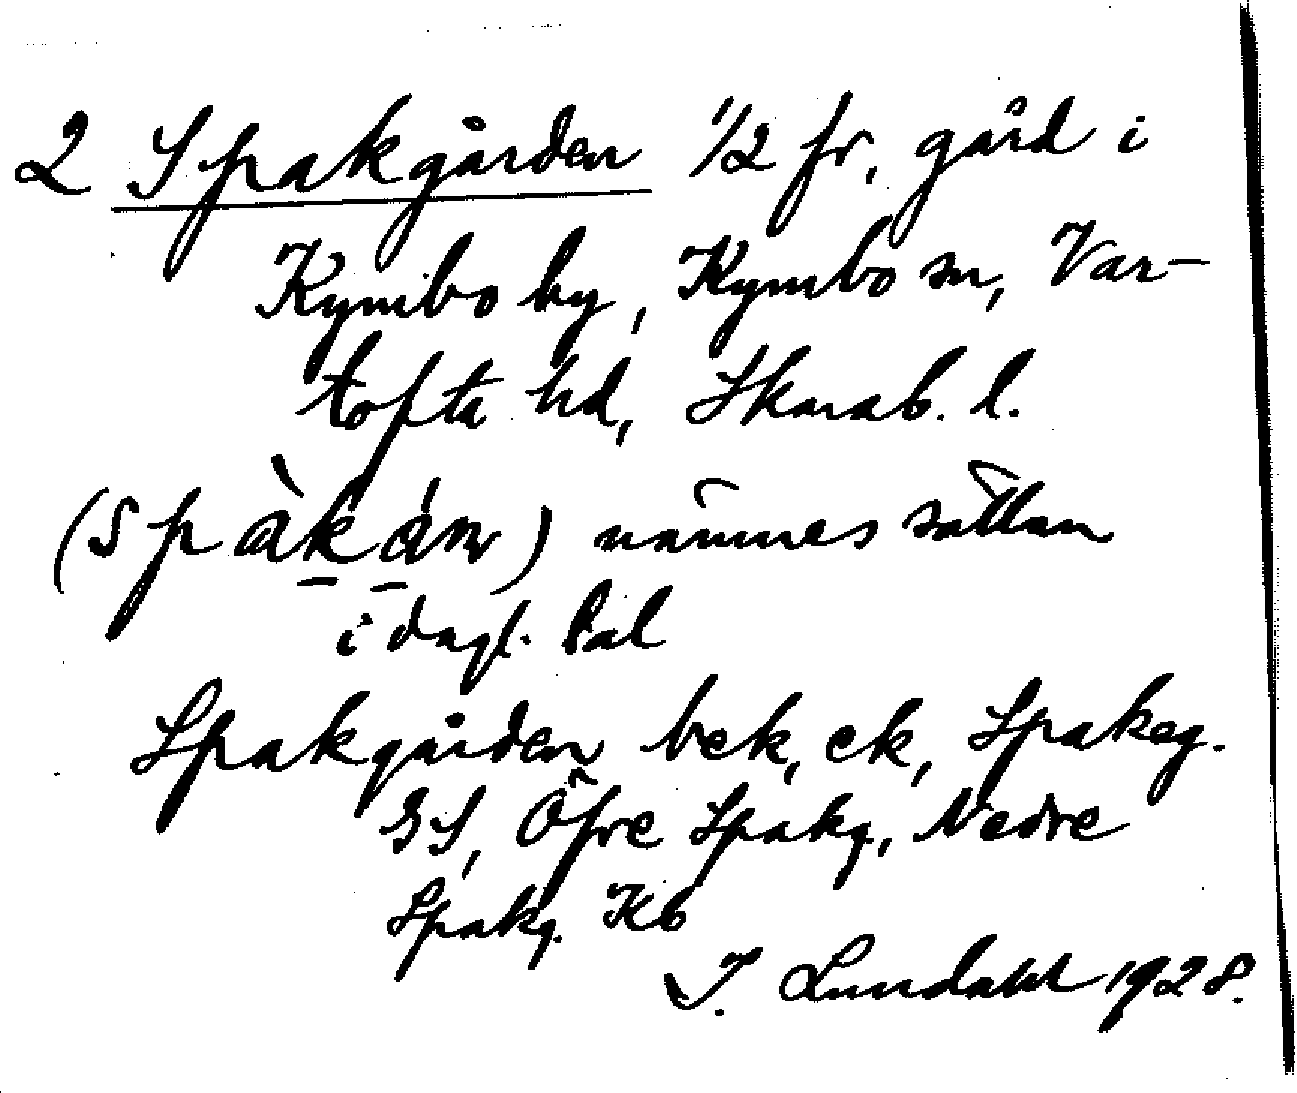 2 Spakgården 1/2 fr, gård i
Kymbo by, Kymbo sn, Var-
tofta hd, Skarab. l.
(spàk án) nämnes sällan
i dagl. tal
Spakgården bek, ek, Spakeg.
GS, Öfre Spakg, Nedre
Spakg. Kb
I. Lundahl 1928.